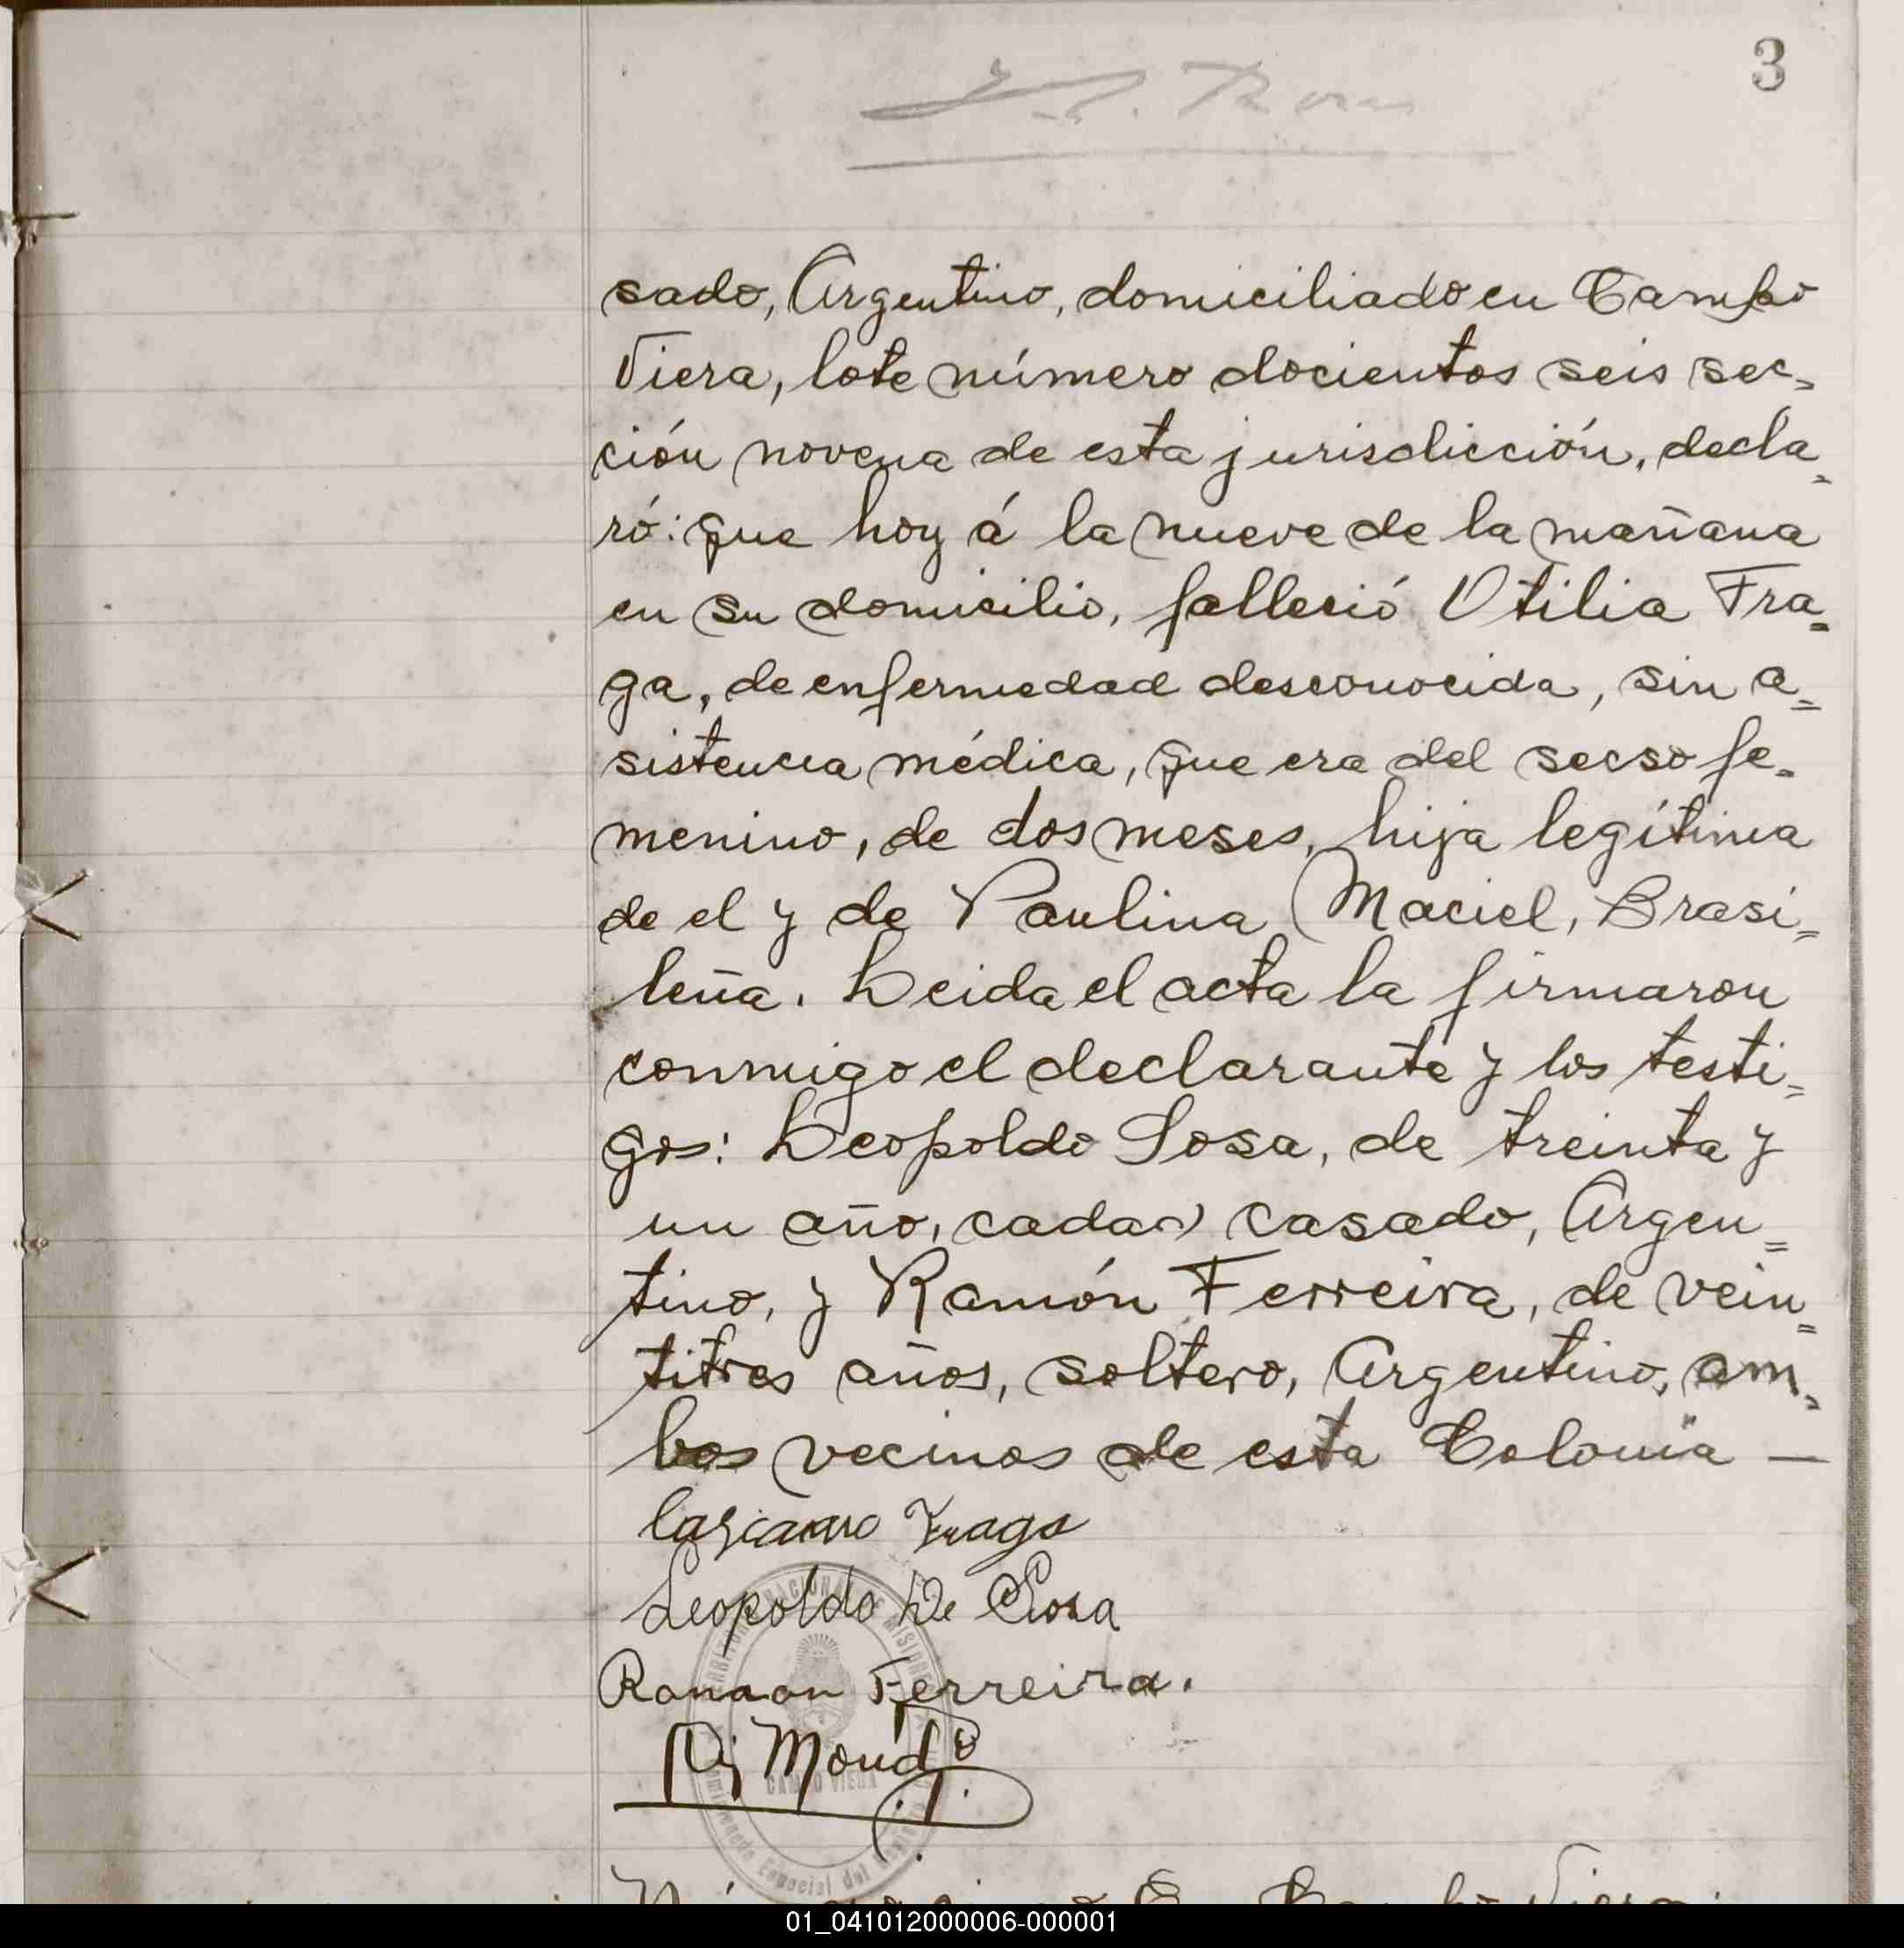 3
sado, Argentino, domiciliado en Campo
Viera, lote número docientos seis sec-
ción novena de esta jurisdicción, decla-
ró: que hoy á la nueve de la mañana
en su domicilio, falleció Otilia Fra=
ga, de enfermedad desconocida, sin a=
sistencia médica, que era del secso fe-
menino, de dos meses, hija legítima
de el y de Paulina Maciel, Brasi=
leña. Leida el acta la firmaron
conmigo el declarante y los testi=
gos: Leopoldo Sosa, de treinta y
un año, cada casado, Argen=
tino, y Ramón Ferreira, de vein=
titres años, soltero, Argentino, am-
bos vecinos de esta Colonia —
Fraga
Leopoldo De Sosa
Ramon Ferreira.
CAMPO VIERA
Especial del
Viera
01_041012000006-000001